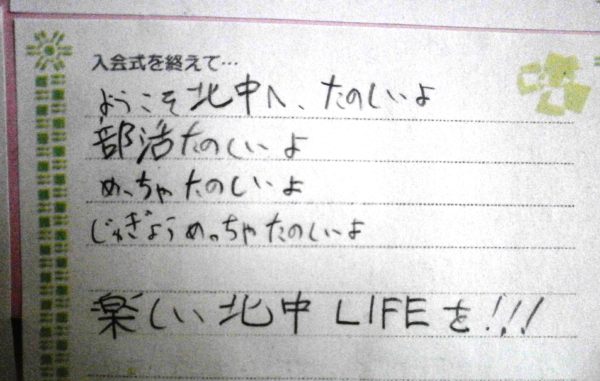 入会式を終えて…
ようこそ北中へ、たのしいよ
部活たのしいよ
めっちゃたのしいよ
じゅぎょうめっちゃたのしいよ
楽しい北中LIFEを!!!